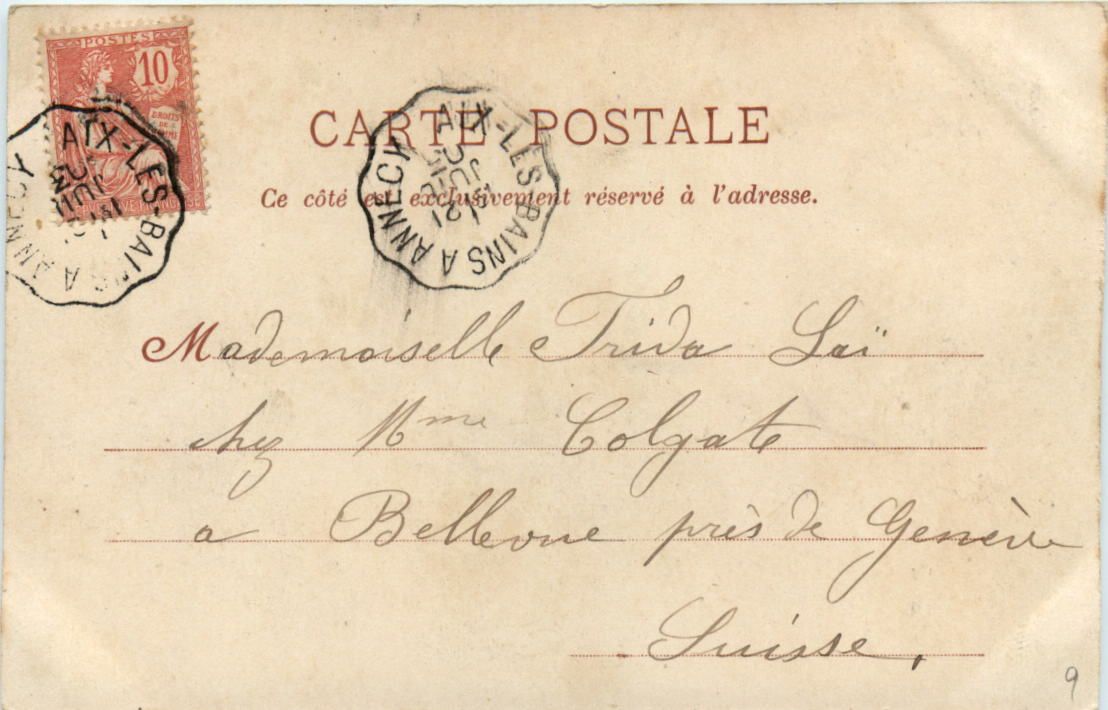 POSTES
10
DROITS
DE
CARTE POSTALE
Ce côté est exclusivement réservé à l'adresse.
AIX-LES-BAINS A ANNECY
AIX-LES-BAINS A ANNECY
Mademoiselle Frida Laï
chez Mme Colgate
a Bellevue près de Genève
Suisse.
9